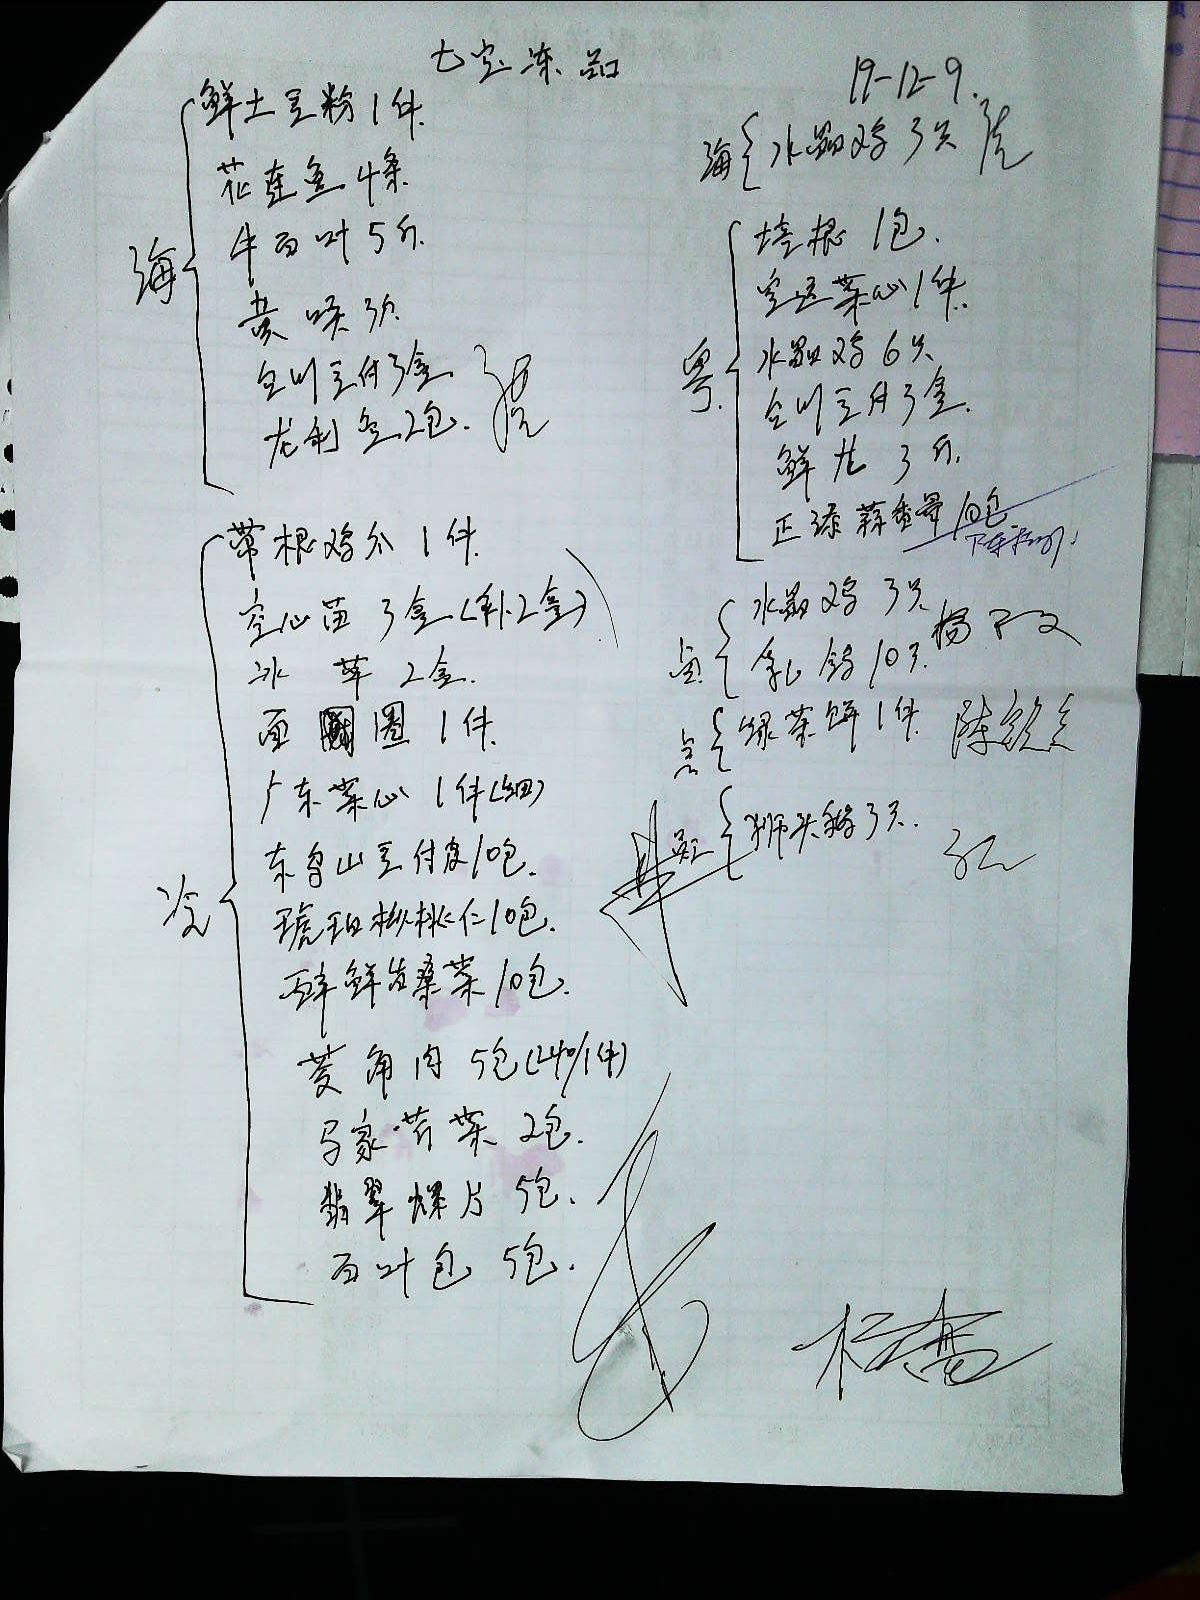 七宝冻品
19-12-9.
海
鲜土豆粉1件
花连鱼4条
牛百叶5斤.
黄喉3斤.
全川豆付3盒
龙利鱼2包.
冷
带根鸡爪1件
空心苗3盒(补2盒)
冰草2盒.
面圈1件
广东菜心1件(细)
东皋山豆付皮10包.
琥珀核桃仁10包.
酵鲜当桑菜10包.
菱角肉5包(240/1件)
马家苦菜2包.
翡翠螺片5包.
百叶包5包.
海 水晶鸡3只
粤.
培根1包.
宁夏菜心1件.
水晶鸡6只
全川豆付3盒.
鲜龙3斤.
正添蒜香骨10包
水晶鸡3只
乳鸽10只.
点 绿茶饼1件
狮头鹅3只.